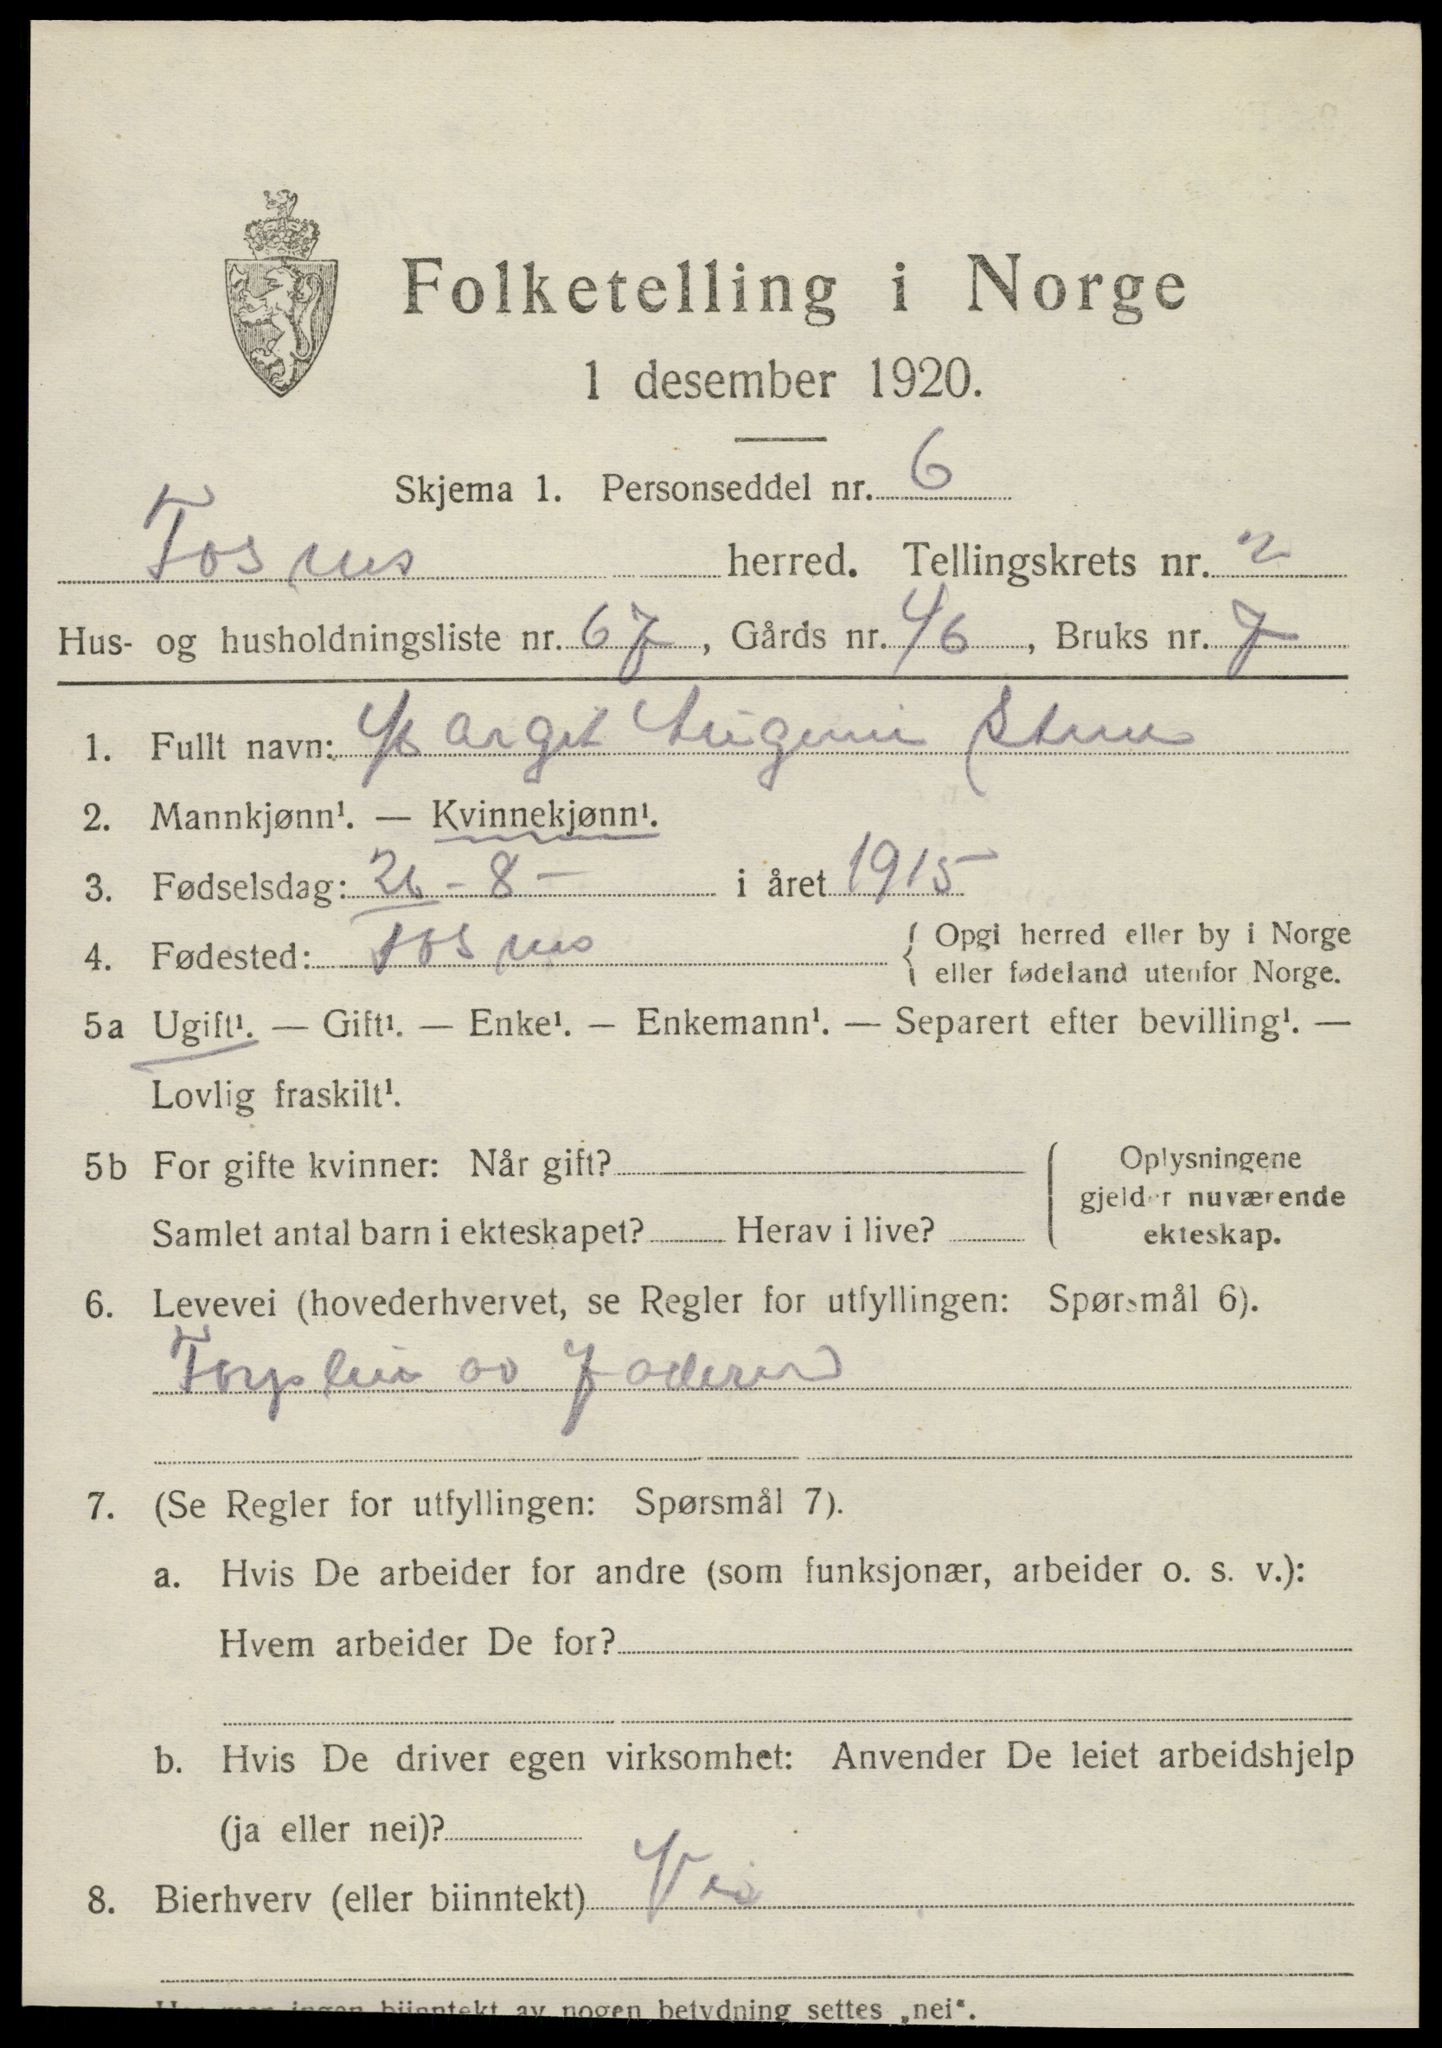 Folketelling i Norge
1 desember 1920.
Skjema 1. Personseddel nr. 6
Fosnes herred. Tellingskrets nr. 2
Hus- og husholdningsliste nr. 67, Gårds nr. 46, Bruks nr. 7
1. Fullt navn: Margit
2. Mannkjønn¹. — Kvinnekjønn¹.
3. Fødselsdag: 26 - 8 - i året 1915
4. Fødested: Fosnes { Opgi herred eller by i Norge
eller fødeland utenfor Norge.
5a Ugift¹. — Gift¹. — Enke¹. — Enkemann¹. — Separert efter bevilling¹. —
Lovlig fraskilt¹.
5b For gifte kvinner: Når gift?
Samlet antal barn i ekteskapet? Herav i live?
Oplysningene
gjelder nuværende
ekteskap.
6. Levevei (hovederhvervet, se Regler for utfyllingen: Spørsmål 6).
av Faderen
7. (Se Regler for utfyllingen: Spørsmål 7).
a. Hvis De arbeider for andre (som funksjonær, arbeider o. s. v.):
Hvem arbeider De for?
b. Hvis De driver egen virksomhet: Anvender De leiet arbeidshjelp
(ja eller nei)?
8. Bierhverv (eller biinntekt) Nei
Har man ingen biinntekt av nogen betydning settes „nei“.